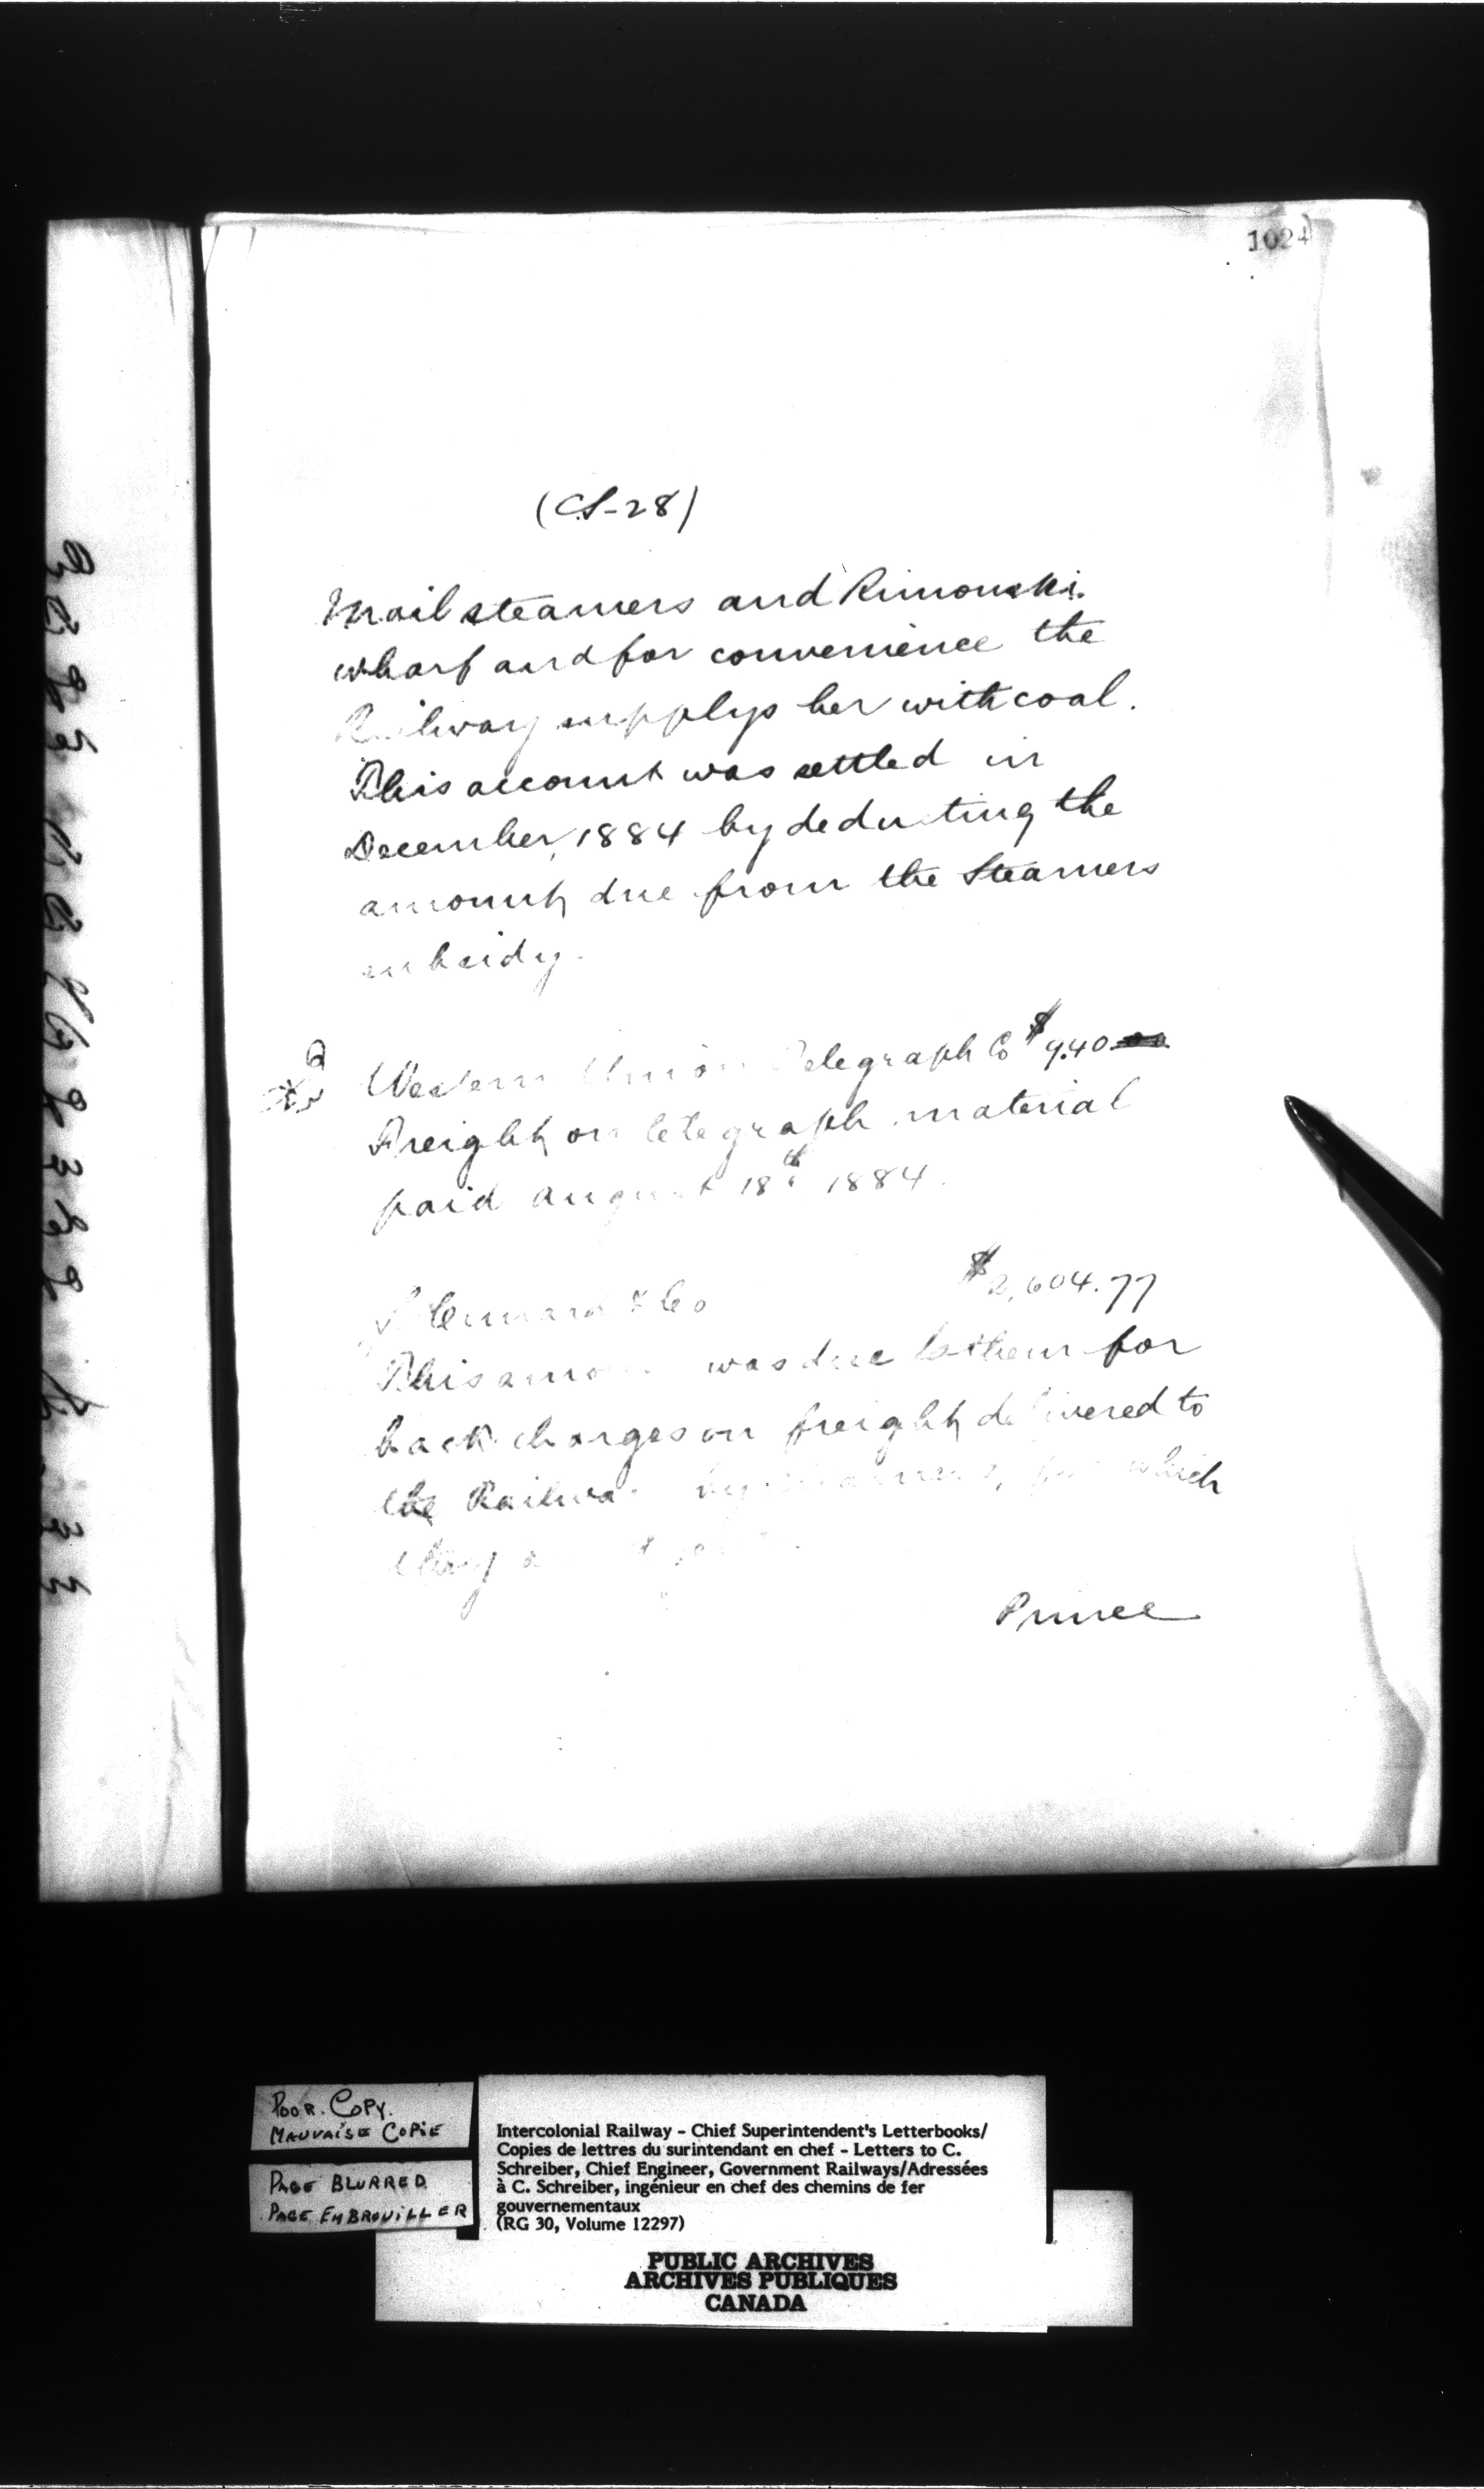 1024
(CS-28)
Mail steamers and Rimouski
wharf and for convenience the
Railway supplys her with coal.
This account was settled in
December, 1884 by deducting the
amount due from the Steamers
subsidy.
Western Union Telegraph Co $9.40
Freight on telegraph material
paid August 18th 1884.
Cunard & Co $2,604.77
This amo was due to them for
back charges on freight delivered to
the Railwa by which
Prince
POOR COPY.
MAUVAISE COPIE
PAGE BLURRED
PAGE EMBROUILLER
Intercolonial Railway - Chief Superintendent's Letterbooks/
Copies de lettres du surintendant en chef - Letters to C.
Schreiber, Chief Engineer, Government Railways/Adressées
à C. Schreiber, ingénieur en chef des chemins de fer
gouvernementaux
(RG 30, Volume 12297)
PUBLIC ARCHIVES
ARCHIVES PUBLIQUES
CANADA